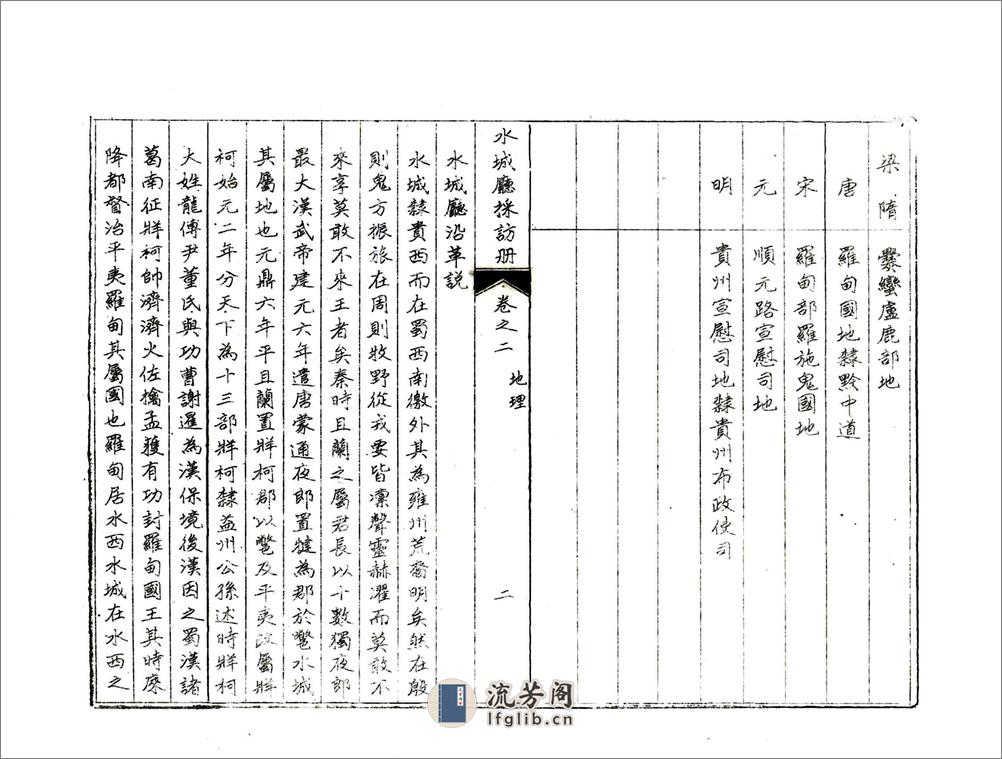 梁 隋 爨蠻盧鹿部地
唐 羅甸國地隸黔中道
宋 羅甸部羅施鬼國地
元 順元路宣慰司地
明 貴州宣慰司地隸貴州布政使司
水城廳採訪册 卷之二 地理 二
水城廳沿革説
水城隸貴西而在蜀西南徼外其為雍州荒裔明矣然在殷
則鬼方振旅在周則牧野從戎要皆凜聲靈赫濯而莫敢不
來享莫敢不來王者矣秦時且蘭之屬君長以十數獨夜郎
最大漢武帝建元六年遣唐蒙通夜郎置犍為郡於鼈水城
其屬地也元鼎六年平且蘭置牂柯郡以鼈及平夷改屬牂
柯始元二年分天下為十三部牂柯隸益州公孫述時牂柯
大姓龍傅尹董氏與功曹謝暹為漢保境後漢因之蜀漢諸
葛南征牂柯帥濟濟火佐擒孟獲有功封羅甸國王其時庲
降都督治平夷羅甸其屬國也羅甸居水西水城在水西之
流芳阁
lfglib.cn